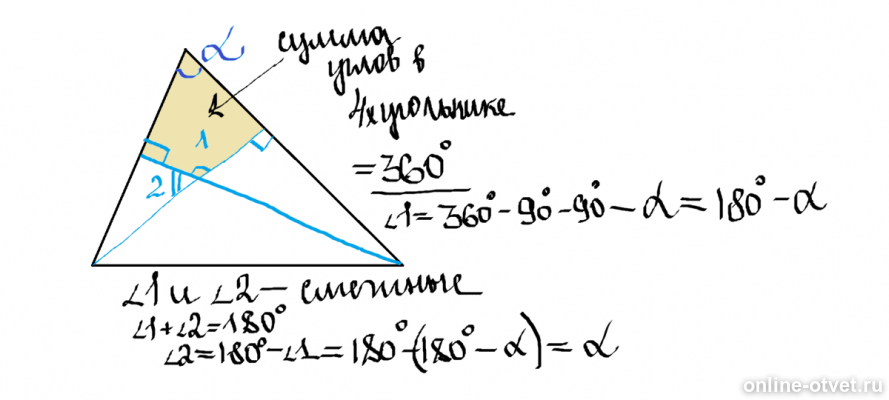 α
сумма
углов в
4хугольнике
= 360°
1
2
∠1 = 360° - 90° - 90° - α = 180° - α
∠1 и ∠2 — смежные
∠1 + ∠2 = 180°
∠2 = 180° - ∠1 = 180° - (180° - α) = α
online-otvet.ru